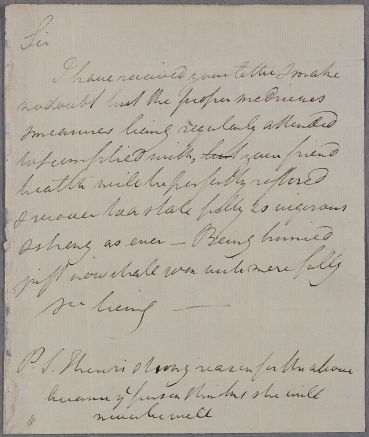 Sir
I have received your letter & make
no doubt but the proper medicines
& measures being regularly attended
to & complied with, but your friend
health will be perfectly restored
& recover to a state fully as vigorous
& strong as ever — Being hurried
just now shall soon write more fully
being —
P.S. There is strong reason for the above
because ye person thinks she will
never be well